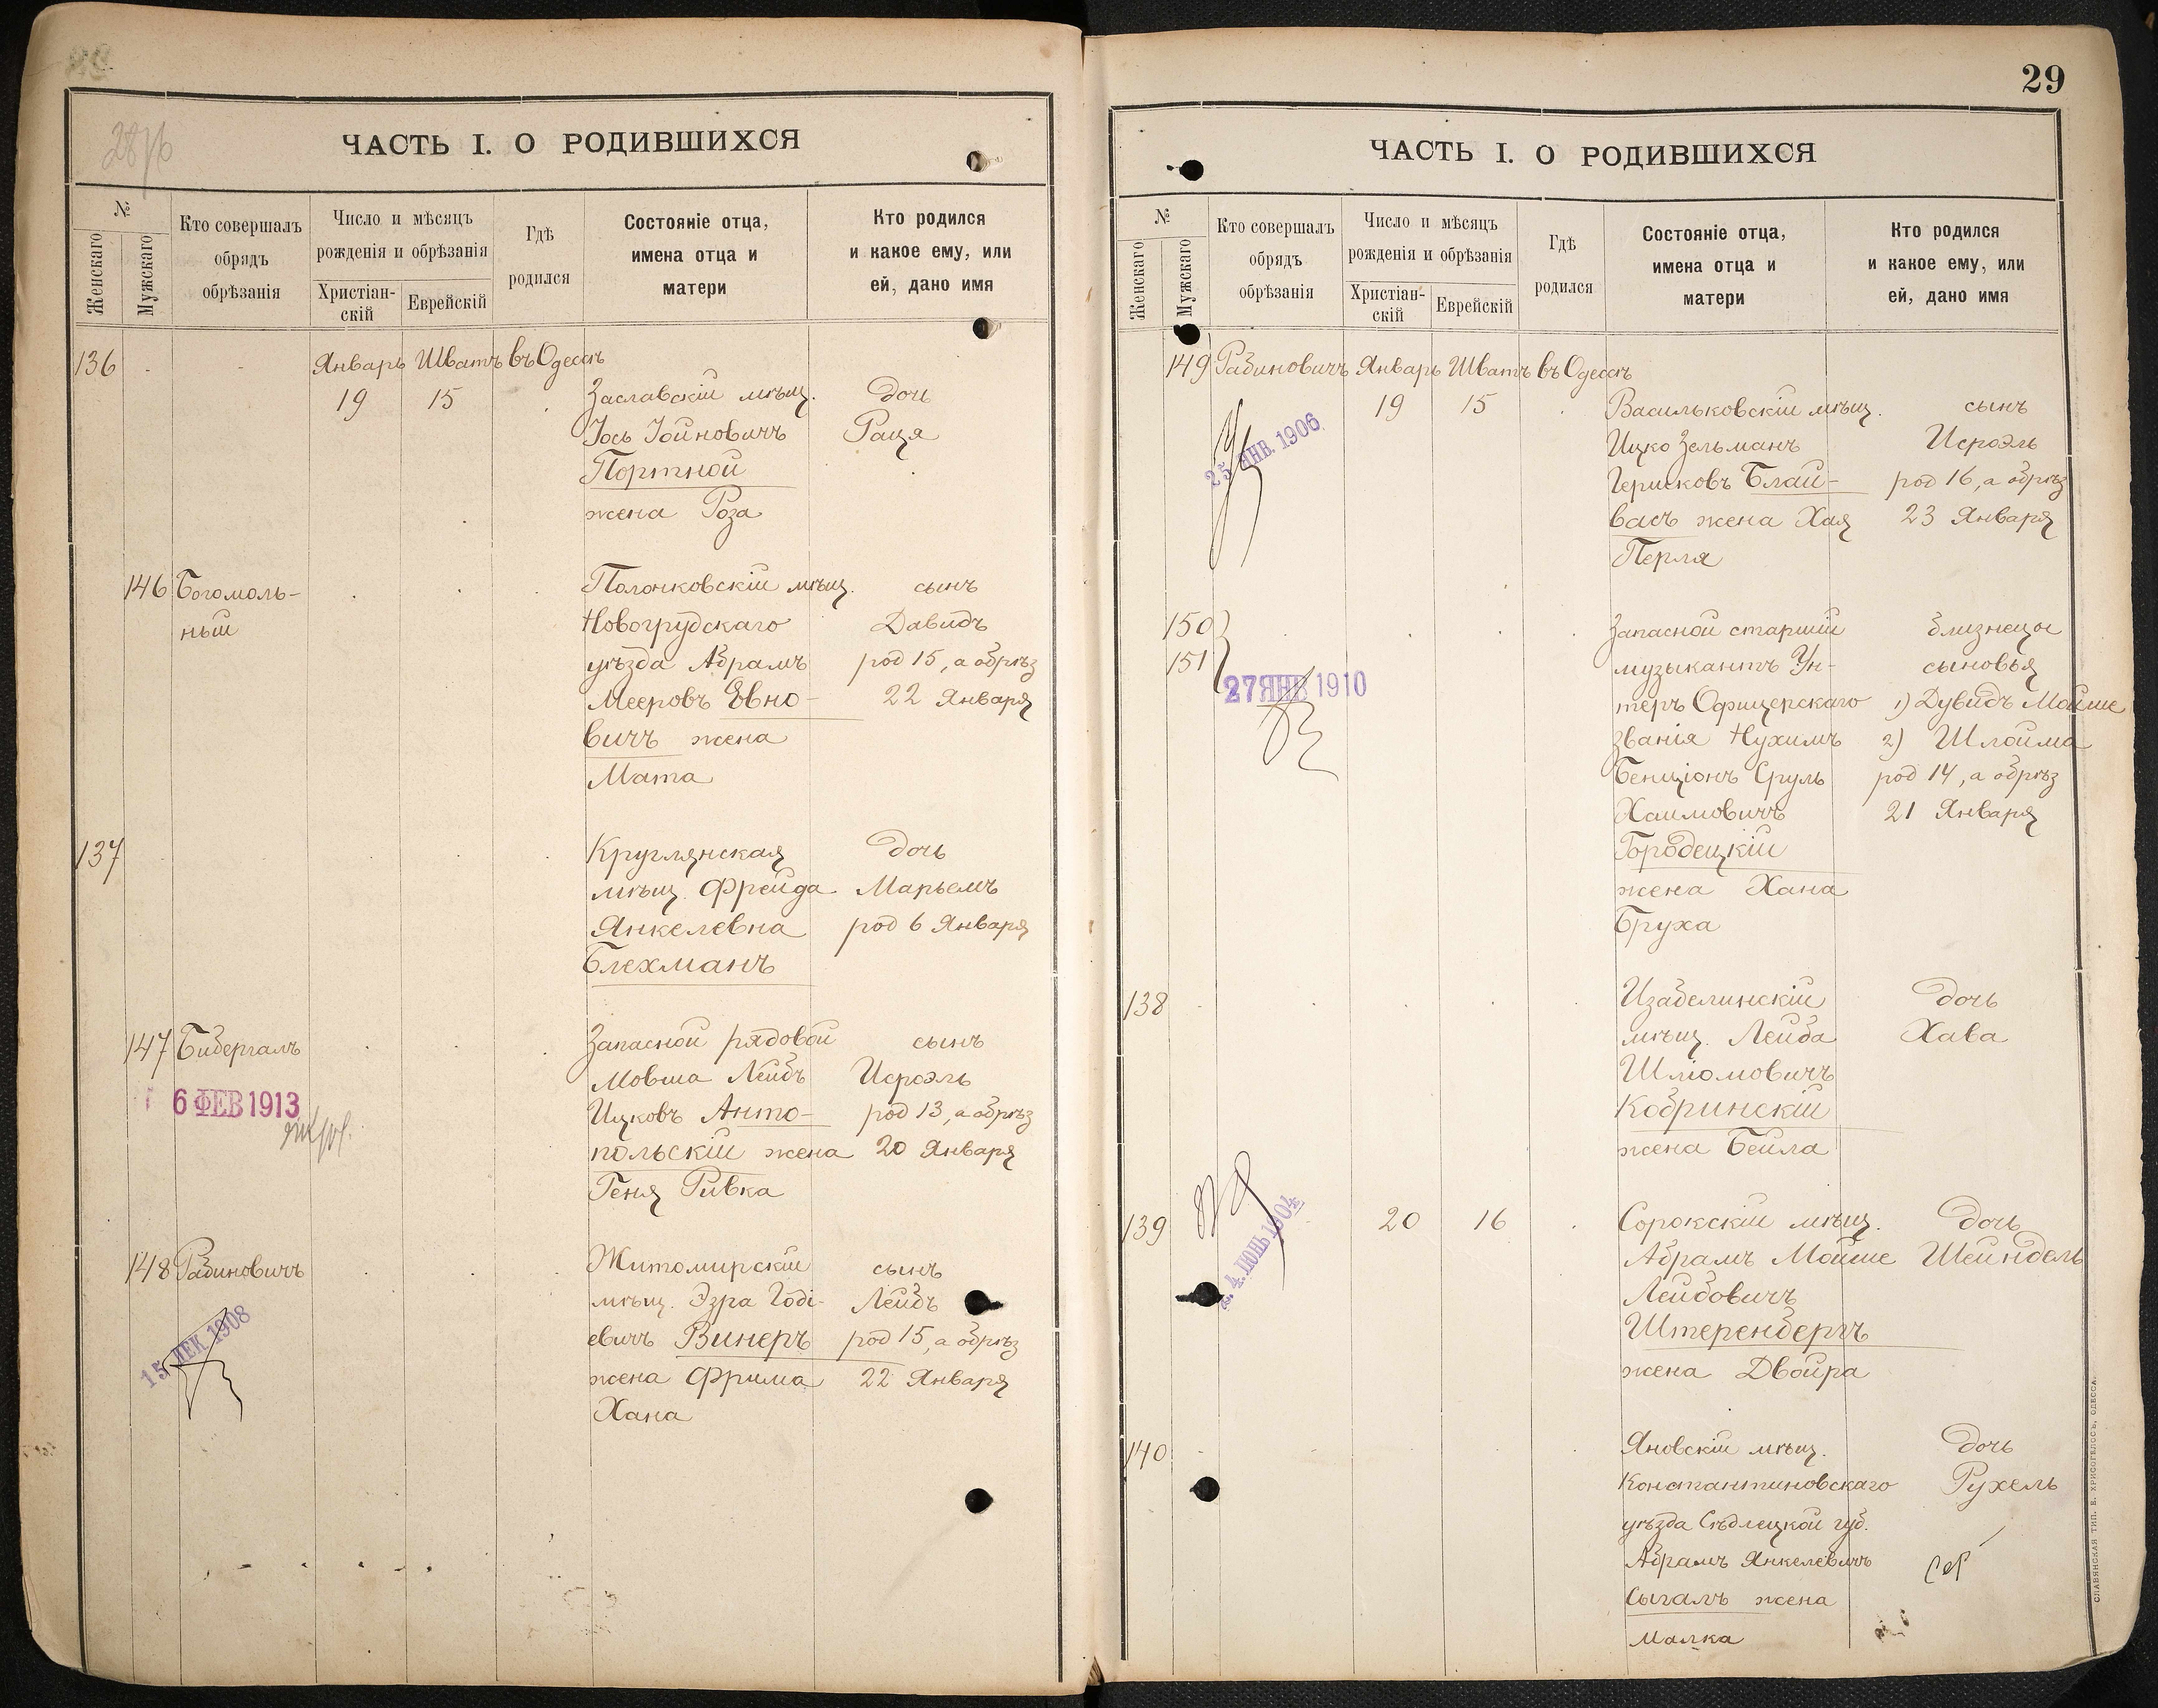 28/б
ЧАСТЬ I. О РОДИВШИХСЯ
№
Женскаго
Мужскаго
Кто совершалъ
обрядъ
обрѣзанія
Число и мѣсяцъ
рожденія и обрѣзанія
Христіан-
скій
Еврейскій
Гдѣ
родился
Состояніе отца,
имена отца и
матери
Кто родился
и какое ему, или
ей, дано имя
136 Январь Шватъ въ Одессѣ
19 15 Заславскій мѣщ. дочь
Іось Іойновичъ Рася
Портной
жена Роза
146 Богомоль- Полонковскій мѣщ. сынъ
ный Новогрудскаго Давидъ
уѣзда Абрамъ род 15, а обрѣз
Мееровъ Евно- 22 Января
вичъ жена
Мата
137 Круглянская дочь
мѣщ. Фрейда Марьемъ
Янкелевна род 6 Января
Блехманъ
147 Бибергалъ Запасной рядовой сынъ
Мовша Лейбъ Исроэль
6 ФЕВ 1913 Ицковъ Анто- род 13, а обрѣз
польскій жена 20 Января
Геня Ривка
148 Рабиновичъ Житомирскій сынъ
мѣщ. Эзра Годі- Лейбъ
15 ДЕК 1908 евичъ Винеръ род 15, а обрѣз
жена Фрима 22 Января
Хана
29
ЧАСТЬ I. О РОДИВШИХСЯ
№
Женскаго
Мужскаго
Кто совершалъ
обрядъ
обрѣзанія
Число и мѣсяцъ
рожденія и обрѣзанія
Христіан-
скій
Еврейскій
Гдѣ
родился
Состояніе отца,
имена отца и
матери
Кто родился
и какое ему, или
ей, дано имя
149 Рабиновичъ Январь Шватъ въ Одессѣ
19 15 Васильковскій мѣщ. сынъ
25 ЯНВ. 1906 Ицко Зельманъ Исроэль
Гершковъ Блай- род 16, а обрѣз
васъ жена Хая 23 Января
Перля
150 Запасной старшій близнецы
151 музыкантъ Ун- сыновья
27 ЯНВ 1910 теръ Офицерскаго 1) Дувидъ Мойше
званія Нухимъ 2) Шлойма
Бенціонъ Сруль род 14, а обрѣз
Хаимовичъ 21 Января
Городецкій
жена Хана
Бруха
138 Изабелинскій дочь
мѣщ. Лейба Хава
Шліомовичъ
Кобринскій
жена Бейла
139 20 16 Сорокскій мѣщ. дочь
4. ІЮНЬ 1904 Абрамъ Мойше Шейндель
Лейбовичъ
Штеренбергъ
жена Двойра
140 Яновскій мѣщ. дочь
Константиновскаго Рухель
уѣзда Сѣдлецкой губ.
Абрамъ Янкелевичъ
Сыгалъ жена
Малка
СЛАВЯНСКАЯ ТИП. Е. ХРИСОГЕЛОСЪ, ОДЕССА.